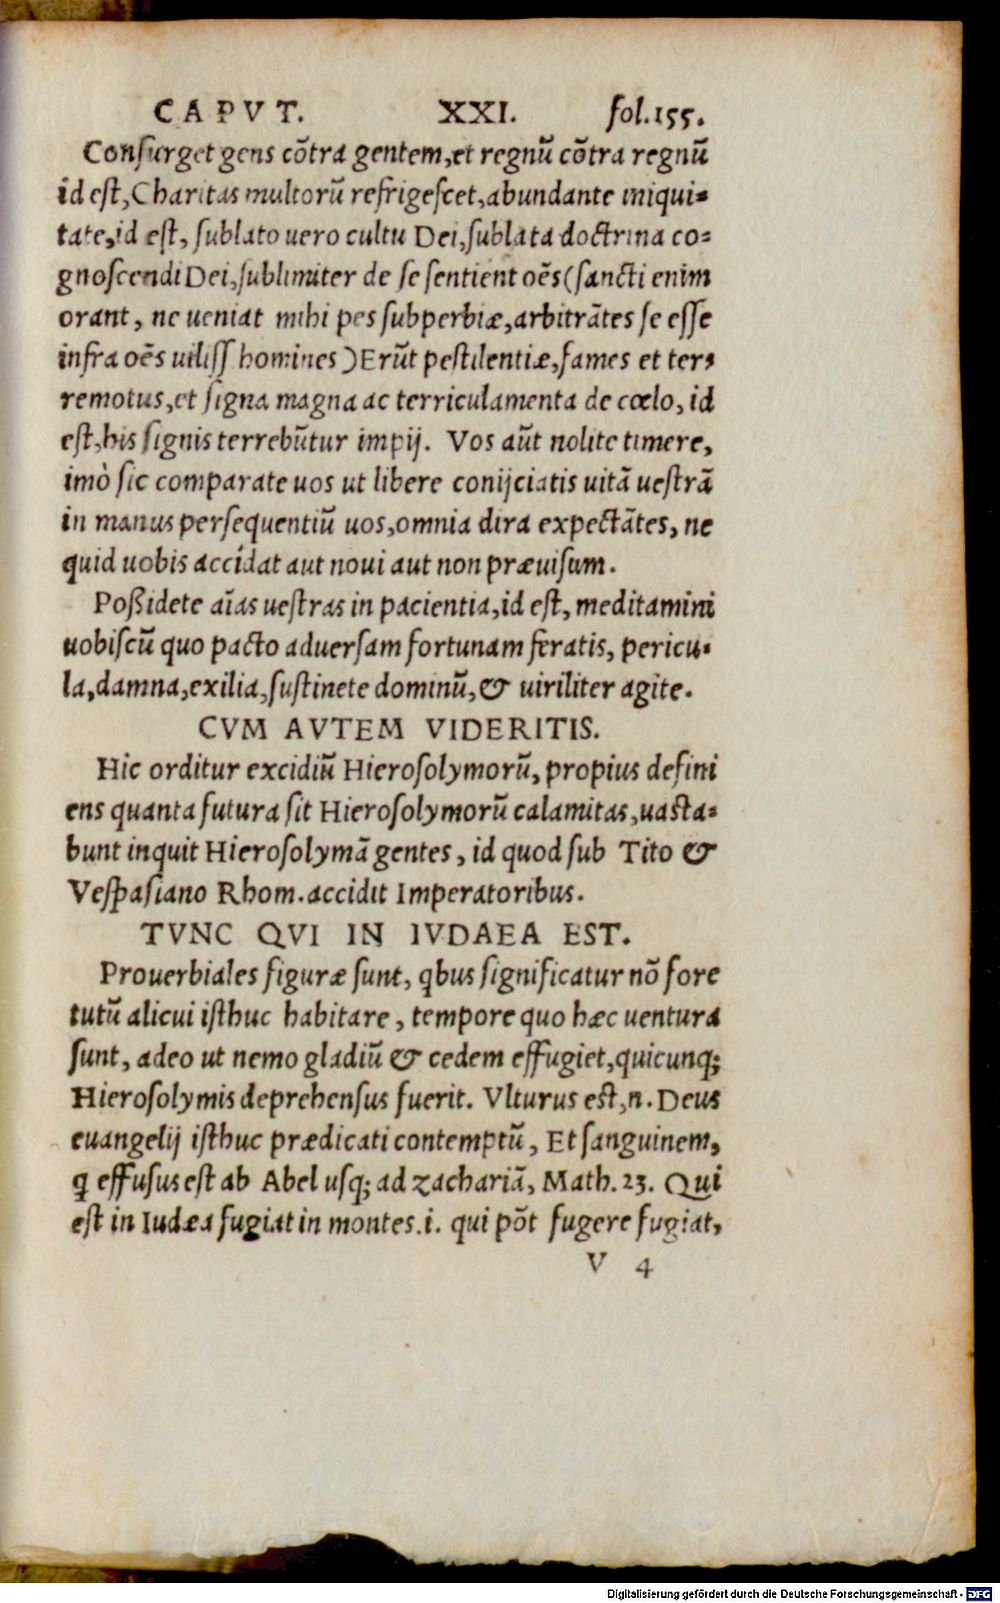 CAPVT. XXI. fol.155.
Consurget gens cõtra gentem,et regnũ cõtra regnũ
id est,Charitas multorũ refrigescet,abundante iniqui=
tate,id est, sublato uero cultu Dei,sublata doctrina co=
gnoscendi Dei,sublimiter de se sentient oẽs(sancti enim
orant, ne ueniat mihi pes subperbiæ,arbitrãtes se esse
infra oẽs uiliss homines)Erũt pestilentiæ,fames et ter=
remotus,et signa magna ac terriculamenta de cœlo, id
est,his signis terrebũtur impij. Vos aũt nolite timere,
imò sic comparate uos ut libere conijciatis uitã uestrã
in manus persequentiũ uos,omnia dira expectãtes, ne
quid uobis accidat aut noui aut non præuisum.
Poßidete aĩas uestras in pacientia,id est, meditamini
uobiscũ quo pacto aduersam fortunam feratis, pericu=
la,damna,exilia,sustinete dominũ,& uiriliter agite.
CVM AVTEM VIDERITIS.
Hic orditur excidiũ Hierosolymorũ, propius defini
ens quanta futura sit Hierosolymorũ calamitas,uasta=
bunt inquit Hierosolymã gentes, id quod sub Tito &
Vespasiano Rhom.accidit Imperatoribus.
TVNC QVI IN IVDAEA EST.
Prouerbiales figuræ sunt, qbus significatur nõ fore
tutũ alicui isthuc habitare, tempore quo hæc uentura
sunt, adeo ut nemo gladiũ & cedem effugiet,quicunq;
Hierosolymis deprehensus fuerit. Vlturus est,n.Deus
euangelij isthuc prædicati contemptũ, Et sanguinem,
q effusus est ab Abel usq; ad zachariã, Math.23. Qui
est in Iudæa fugiat in montes.i. qui põt fugere fugiat,
V 4
Digitalisierung gefördert durch die Deutsche Forschungsgemeinschaft - DFG